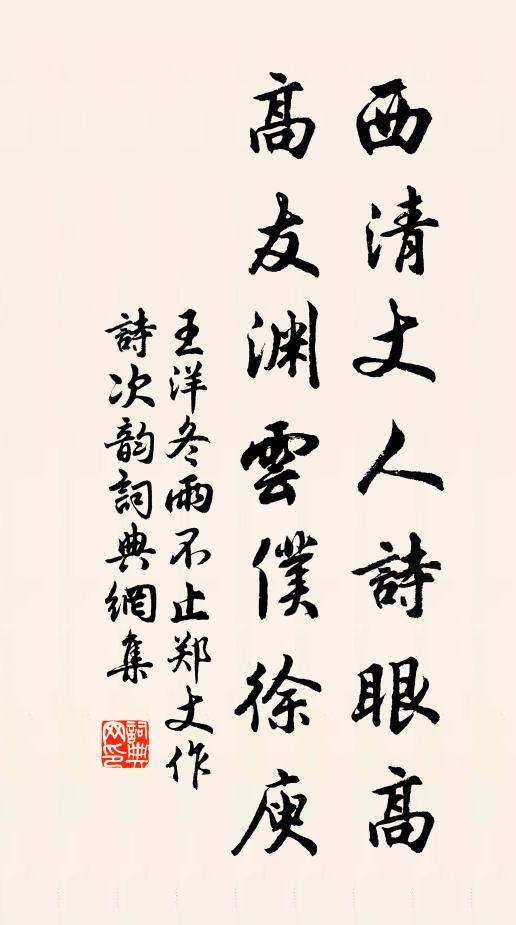 西清丈人詩眼高
高友渊雲僕徐庾
王洋冬雨不止郑丈作
詩次韵詞典網集
詞典
网印